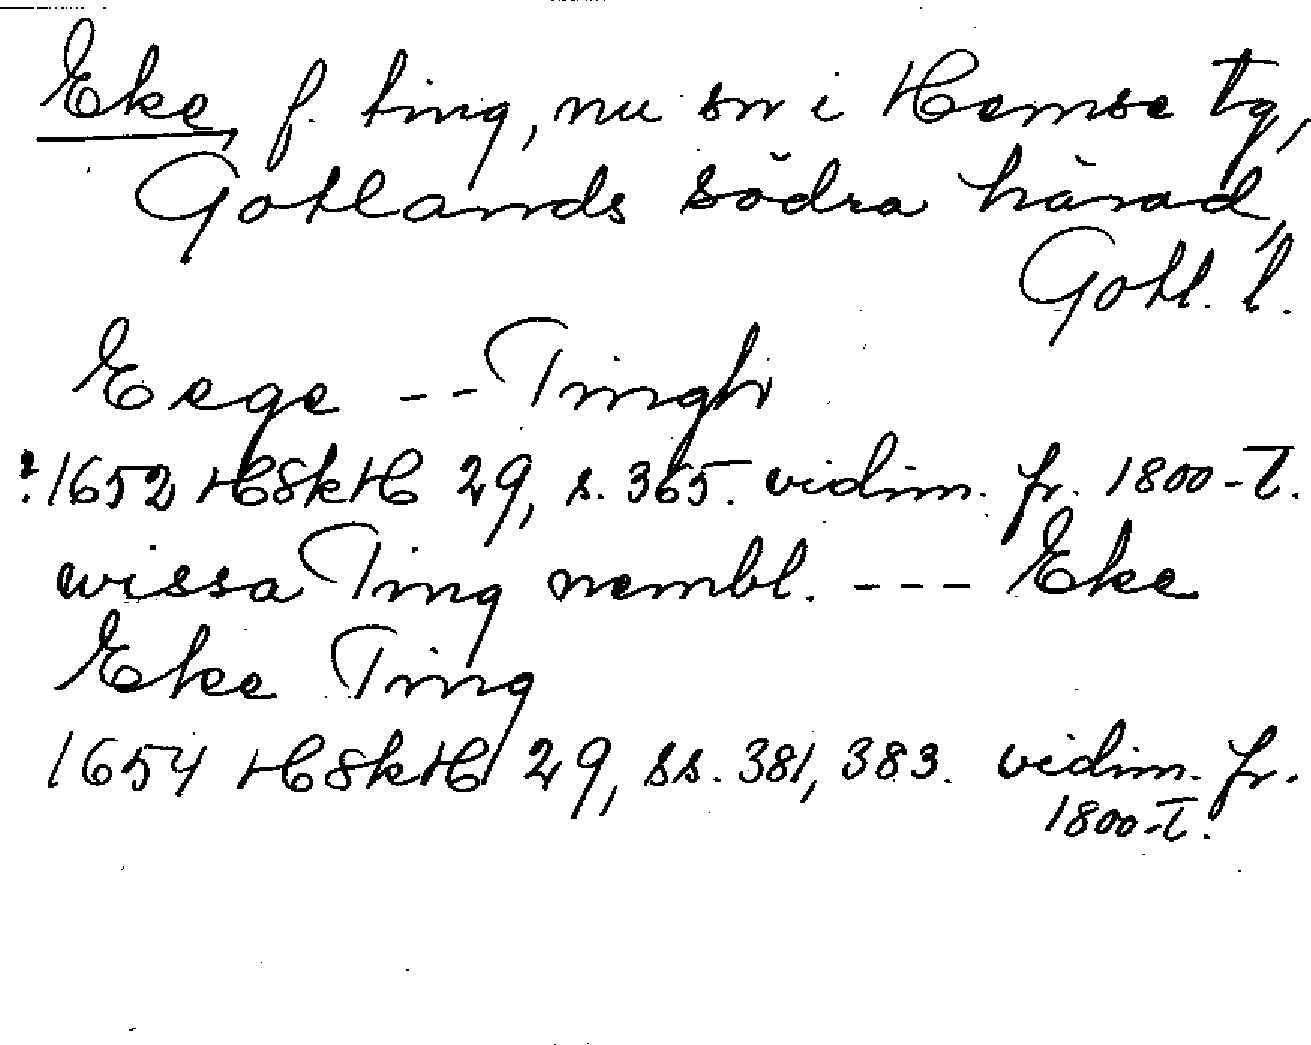 Eke, f. ting, nu sn i Hemse tg,
Gotlands södra härad,
Gotl. l.
Eege -- Tingh
: 1652 HSkH 29, s. 365. vidim. fr. 1800-T.
wissa Ting nembl. --- Eke
Eke Ting
1654 HSkH 29, ss. 381, 383. vidim. fr.
1800-T.